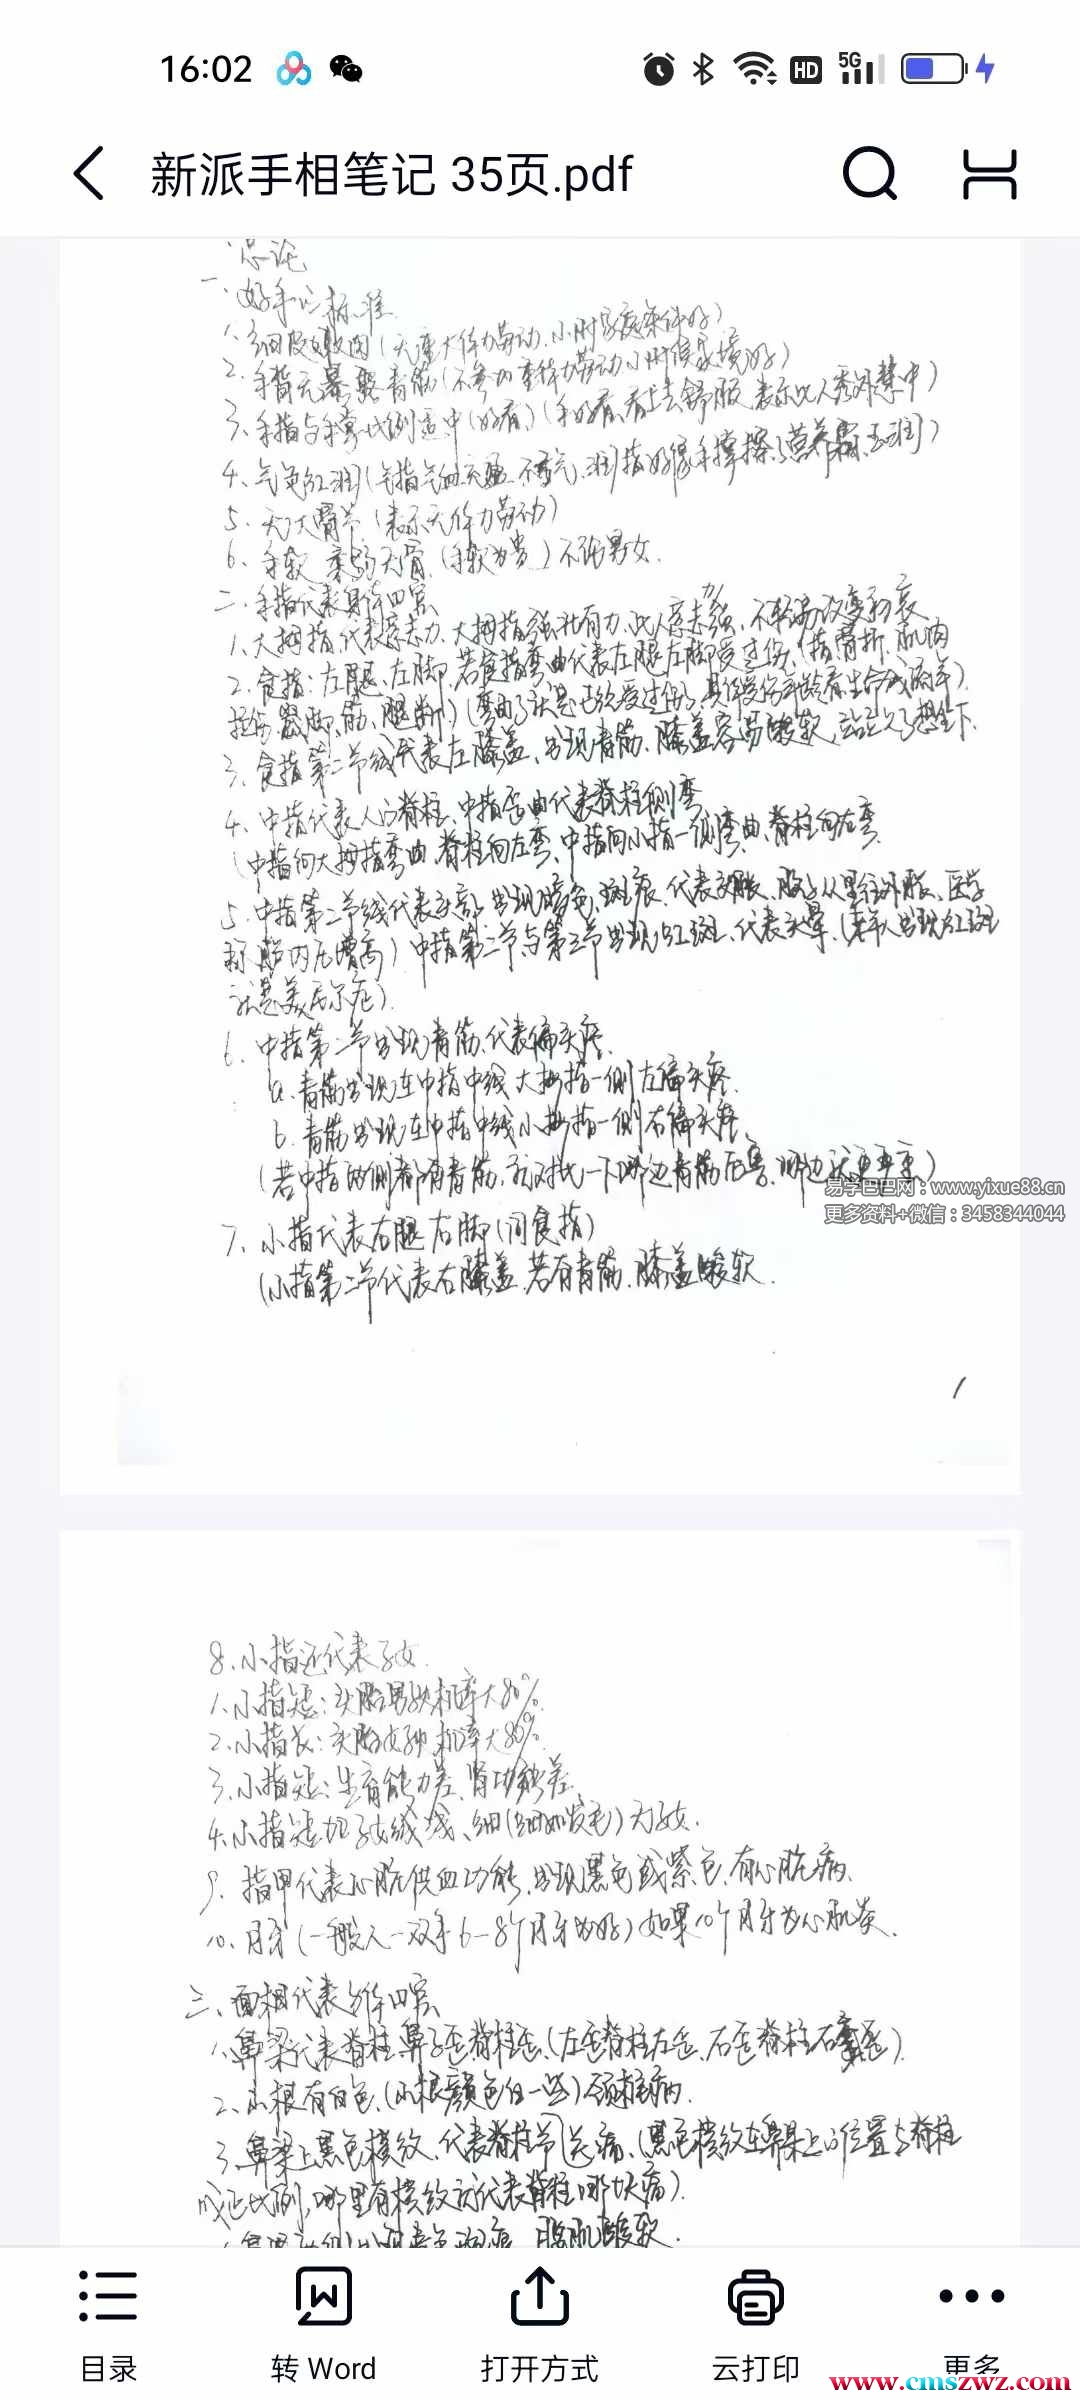 16:02
HD 5G
新派手相笔记 35页.pdf
总论
一、好手的标准
1、细皮嫩肉(无重大体力劳动、小时家庭条件好)
2、手背无暴裂青筋(不参加重体力劳动小时候家境好)
3、手指与手掌比例适中(好看)(手好看,看上去舒服,表示此人秀外慧中)
4、气色红润(气指气血充盈
5、无大骨节(表示无体力劳动)
6、手软 柔弱无骨(手软为贵)不论男女.
二、手指代表身体四宫
1、大拇指,代表意志力,大拇指强壮有力,此人意志力强,不轻易改变
2、食指:左腿、左脚,若食指弯曲代表左腿左脚受过伤,(指骨折、肌肉
拉伤、崴脚、筋、腿断)(弯曲了就是七次受过伤,具体受伤年龄看生命线流年)
3、食指第二节线代表左膝盖,出现青筋,膝盖容易酸软,站立久了想坐下.
4、中指代表人的脊柱,中指歪曲代表脊柱侧弯
(中指向大拇指弯曲,脊柱向左弯,中指向小指一侧弯曲,脊柱向右弯
5、中指第二节线代表头部,出现暗色、斑痕,代表头胀,脑子从里往外胀,医学
称脑内压增高)中指第二节与第三节出现红斑,代表头晕,(老年人出现红斑
就是美尼尔症)
6、中指第二节出现青筋,代表偏头疼.
a.青筋出现在中指中线大拇指一侧左偏头疼.
b.青筋出现在中指中线小拇指一侧右偏头疼.
(若中指两侧都有青筋,就对比一下哪边青筋厉害,哪边就更严重)
易学巴巴网:www.yixue88.cn
更多资料+微信:3458344044
7、小指代表右腿右脚(同食指)
(小指第二节代表右膝盖,若有青筋,膝盖酸软.
1
8、小指还代表子女.
1、小指短:头胎男孩机率大80%.
2、小指长:头胎女孩机率大80%.
3、小指短:生育能力差,肾功能差
4、小指短加子女线浅、细(细如发毛)无子女.
9、指甲代表心脏供血功能,出现黑色或紫色,有心脏病.
10、月牙(一般人一双手6-8个月牙为好)如果10个月牙为心肌炎.
三、面相代表身体四宫
1、鼻梁代表脊柱鼻子歪脊柱歪,(左歪脊柱左歪,右歪脊柱右歪)
2、山根有白色,(山根颜色白一些)颈椎病.
3、鼻梁上黑色横纹,代表脊柱节段病,(黑色横纹在鼻梁上的位置与脊柱
成正比例,哪里有横纹就代表脊柱哪块病).
腰肌酸软.
目录
转 Word
打开方式
云打印
更多
www.cmszwz.com